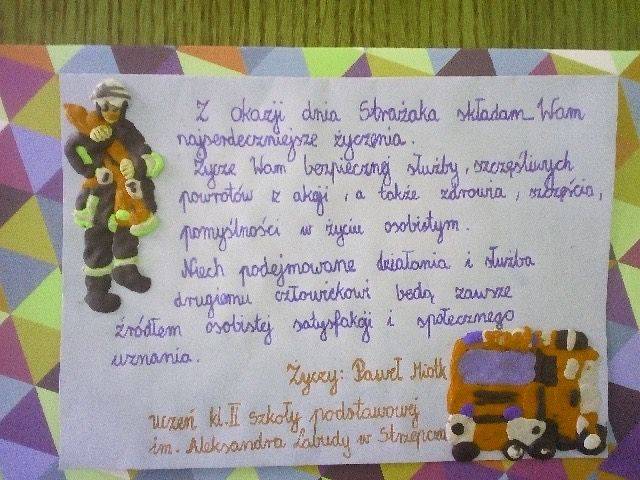 Z okazji dnia Strażaka składam Wam
najserdeczniejsze życzenia.
Życzę Wam bezpiecznej służby, szczęśliwych
powrotów z akcji, a także zdrowia, szczęścia,
pomyślności w życiu osobistym.
Niech podejmowane działania i służba
drugiemu człowiekowi będą zawsze
źródłem osobistej satysfakcji i społecznego
uznania.
Życzy: Paweł Miotk
uczeń kl. II szkoły podstawowej
im. Aleksandra Labudy w Strzepczu